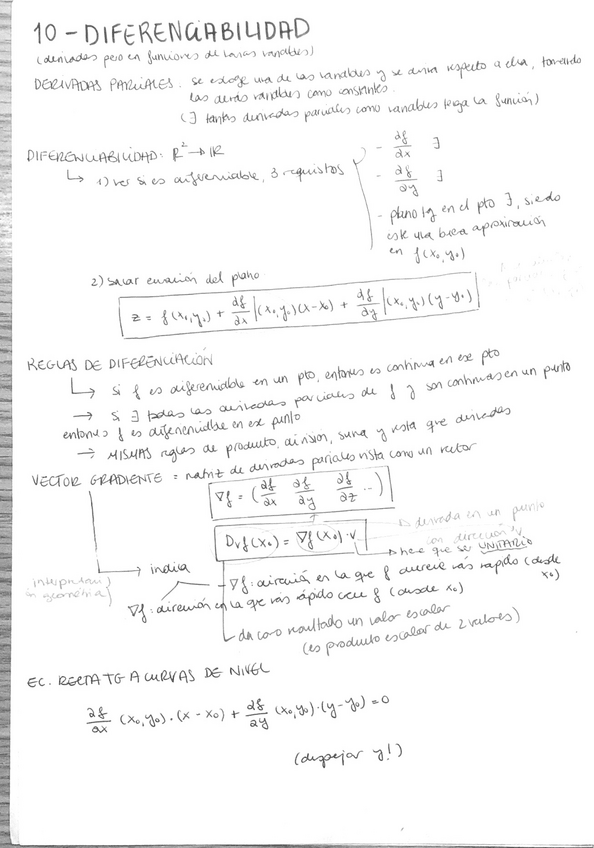 10 - DIFERENCIABILIDAD
(derivadas pero en funciones de varias variables)
DERIVADAS PARCIALES. se escoge una de las variables y se deriva respecto a ella, tomando
las demás variables como constantes.
(∃ tantas derivadas parciales como variables tenga la función)
DIFERENCIABILIDAD: R² → R
↳ 1) ver si es diferenciable, 3 requisitos
- df/dx ∃
- df/dy ∃
- plano tg en el pto ∃, siendo
este una buena aproximación
en f(x₀,y₀)
2) sacar ecuación del plano
z = f(x₀,y₀) + df/dx |(x₀,y₀)(x-x₀) + df/dy |(x₀,y₀)(y-y₀)
REGLAS DE DIFERENCIACIÓN
↳ si f es diferenciable en un pto, entonces es continua en ese pto
→ si ∃ todas las derivadas parciales de f y son continuas en un punto
entonces f es diferenciable en ese punto
→ MISMAS reglas de producto, división, suma y resta que derivadas
VECTOR GRADIENTE = matriz de derivadas parciales vista como un vector
∇f = (∂f/∂x ∂f/∂y ∂f/∂z ...)
Dvf(x₀) = ∇f(x₀)·v
→ derivada en un punto
con dirección v
→ tiene que ser UNITARIO
→ indica
(interpretación
en geometría)
- ∇f: dirección en la que f decrece más rápido (desde
x₀)
∇f: dirección en la que más rápido crece f (desde x₀)
da como resultado un valor escalar
(es producto escalar de 2 valores)
EC. RECTA TG A CURVAS DE NIVEL
∂f/∂x (x₀,y₀)·(x - x₀) + ∂f/∂y (x₀,y₀)·(y-y₀) = 0
(despejar y!)